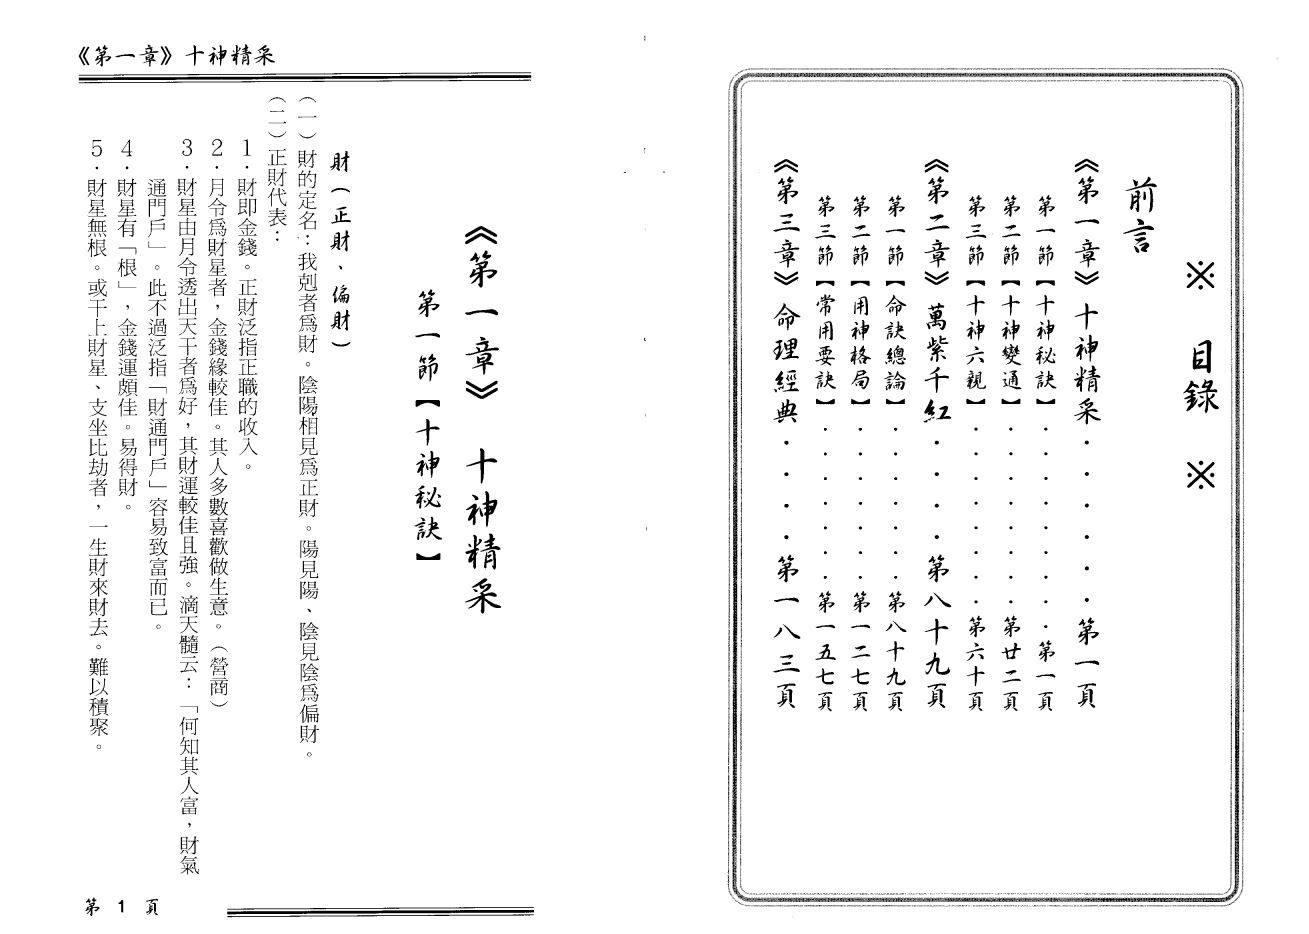 ※ 目錄 ※
前言
《第一章》十神精采．．．．．．第一頁
第一節【十神秘訣】．．．．．．．．．第一頁
第二節【十神變通】．．．．．．．．第廿二頁
第三節【十神六親】．．．．．．．．第六十頁
《第二章》萬紫千紅．．．．第八十九頁
第一節【命訣總論】．．．．．．．第八十九頁
第二節【用神格局】．．．．．．．第一二七頁
第三節【常用要訣】．．．．．．．第一五七頁
《第三章》命理經典．．．．第一八三頁
《第一章》十神精采
《第一章》 十神精采
第一節【十神秘訣】
財（正財、偏財）
（一）財的定名：我剋者爲財。陰陽相見爲正財。陽見陽、陰見陰爲偏財。
（二）正財代表：
1．財即金錢。正財泛指正職的收入。
2．月令爲財星者，金錢緣較佳。其人多數喜歡做生意。（營商）
3．財星由月令透出天干者爲好，其財運較佳且強。滴天髓云：「何知其人富，財氣
通門戶」。此不過泛指「財通門戶」容易致富而已。
4．財星有「根」，金錢運頗佳。易得財。
5．財星無根。或干上財星、支坐比劫者，一生財來財去。難以積聚。
第 1 頁